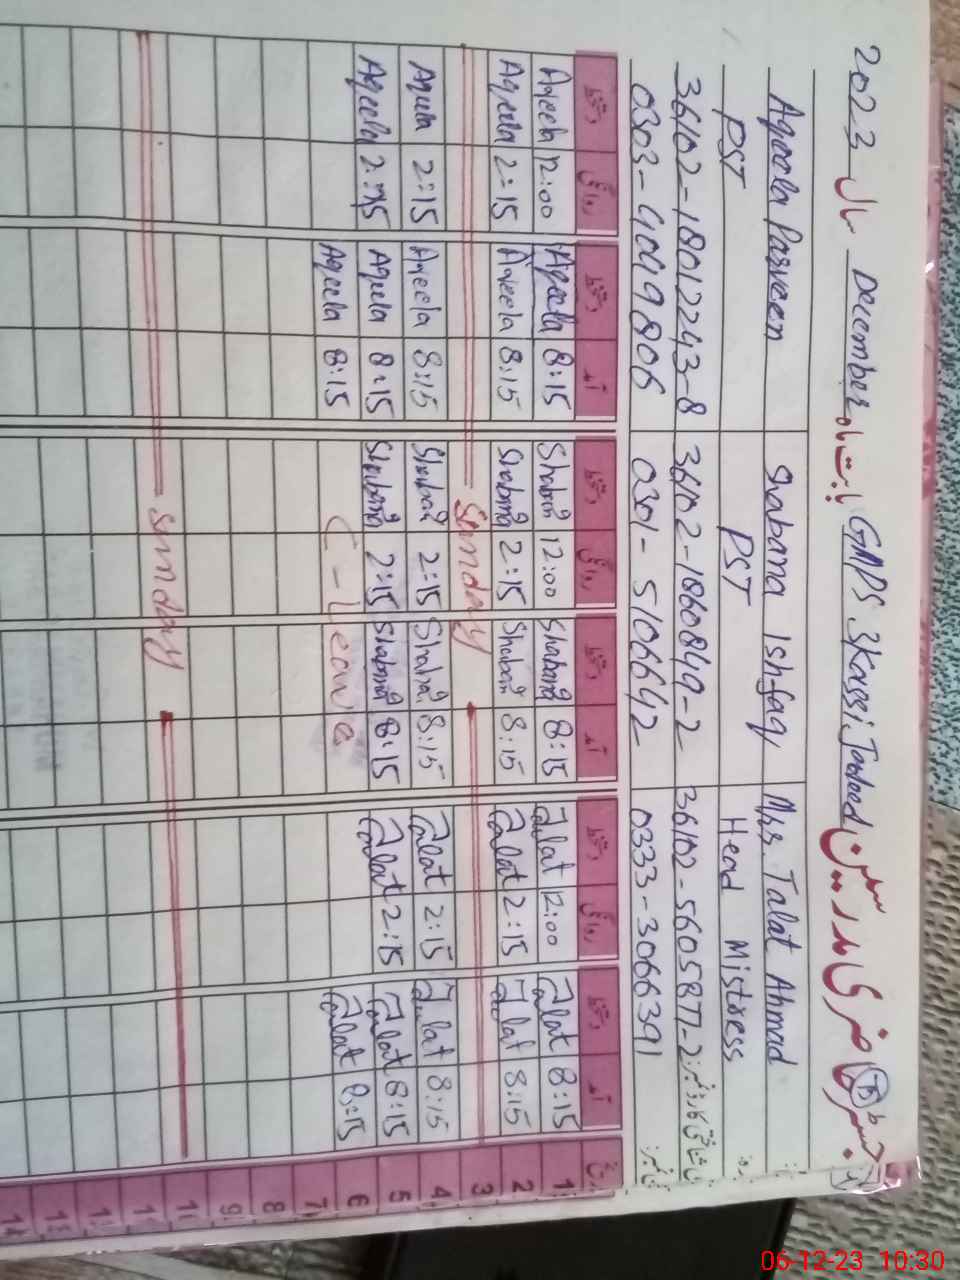 رجسٹر حاضری مدرسین GMPS 3Kassi Jadeed بابت ماہ December سال 2023
Mrs. Talat Ahmad Shabana Ishfaq Aqeela Parveen
Head Mistress PST PST
36102-5605877-2 36102-1860849-2 36102-18012243-8
0333-3066391 0301-5106642 0303-4049806
تاریخ آمد دستخط روانگی دستخط آمد دستخط روانگی دستخط آمد دستخط روانگی دستخط
1 8:15 Talat 12:00 Talat 8:15 Shabana 12:00 Shabana 8:15 Aqeela 12:00 Aqeela
2 8:15 Talat 2:15 Talat 8:15 Shabana 2:15 Shabana 8:15 Aqeela 2:15 Aqeela
3 Sunday
4 8:15 Talat 2:15 Talat 8:15 Shabana 2:15 Shabana 8:15 Aqeela 2:15 Aqeela
5 8:15 Talat 2:15 Talat 8:15 Shabana 2:15 Shabana 8:15 Aqeela 2:15 Aqeela
6 8:15 Talat C-Leave 8:15 Aqeela
7
8
9
10 Sunday
06-12-23 10:30